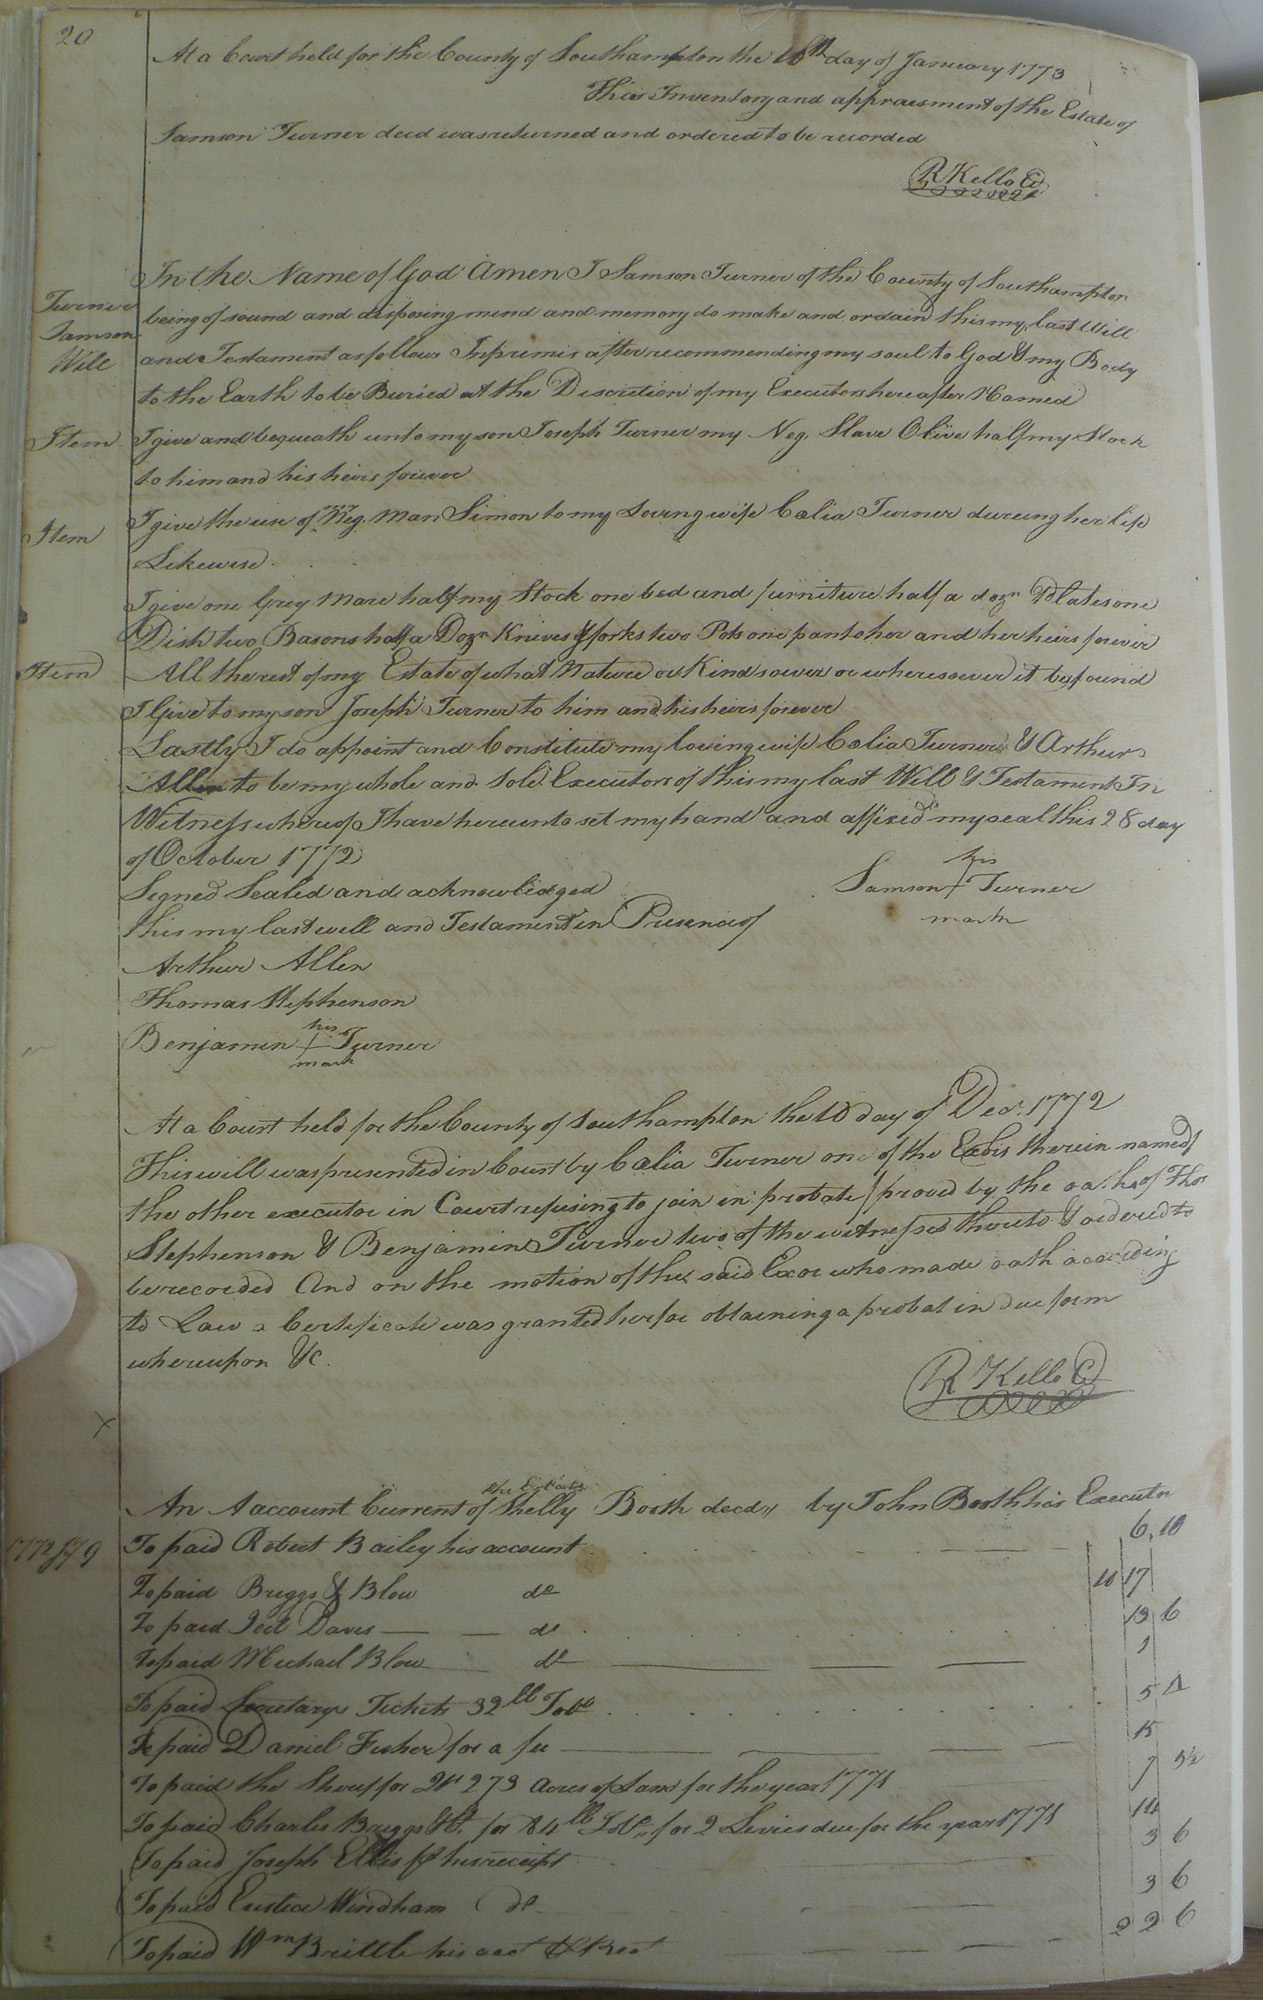 20
At a Court held for the County of Southampton the 10th day of January 1773
This Inventory and appraisment of the Estate of
Samson Turner decd was returned and ordered to be recorded
R Kello Cl
In the Name of God Amen I Samson Turner of the County of Southampton
Turner
Samson
Will
being of sound and disposing mind and memory do make and ordain this my last Will
and Testament as follows Inpremis after recommending my soul to God & my Body
to the Earth to be Buried at the Discretion of my Executors hereafter Named
Item I give and bequeath unto my son Joseph Turner my Neg. Slave Olive half my Stock
to him and his heirs forever
Item I give the use of my Neg. Man Simon to my Loving wife Calia Turner dureing her life
Likewise
I give one Grey Mare half my Stock one bed and furniture half a dozn Plates one
Dish two Basons half a Dozn Knives & forks two Pots one pan to her and her heirs forever
Item All the rest of my Estate of what Nature or Kind soever or wheresoever it be found
I Give to my son Joseph Turner to him and his heirs forever
Lastly I do appoint and Constitute my loving wife Calia Turner & Arthur
Allen to be my whole and Sole Executors of this my last Will & Testament In
Witness whereof I have hereunto set my hand and affixed my seal this 28 day
of October 1772
Signed Sealed and acknowlidged
his
Samson + Turner
mark
this my last will and Testament in Presence of
Arthur Allen
Thomas Stephenson
his
Benjamin + Turner
mark
At a Court held for the County of Southampton the 10 day of Decr. 1772
This will was presented in Court by Calia Turner one of the Exors therein named
the other executor in Court refusing to join in probate / proved by the oaths of Thos
Stephenson & Benjamin Turner two of the witnesses thereto & ordered to
be recorded And on the motion of the said Exor who made oath according
to Law a Certificate was granted her for obtaining a probat in due form
whereupon &c.
R Kello Cl
the Estate
An Aaccount Current of Shelly Booth decd by John Booth his Executor
To paid Robert Bailey his account 6. 10
To paid Briggs & Blow do 10 17
To paid Davis do 13 6
To paid Michael Blow do 1
To paid Secretarys Tickets 32 lb Tobo 5 4
To paid Daniel Fisher for a fee 15
To paid the Sheriff for Qt 273 Acres of Land for the year 1771 7 5½
To paid Charles Briggs for 84 lb Tobo for 2 Levies due for the year 1771 14
To paid Joseph Ellis his receipt 3 6
To paid Eustice Windham do 3 6
To paid Wm Brittle his acct & Rect 2 2 6